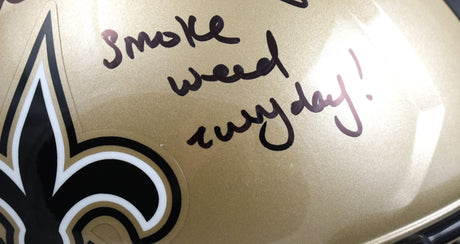 smoke
weed
everyday!